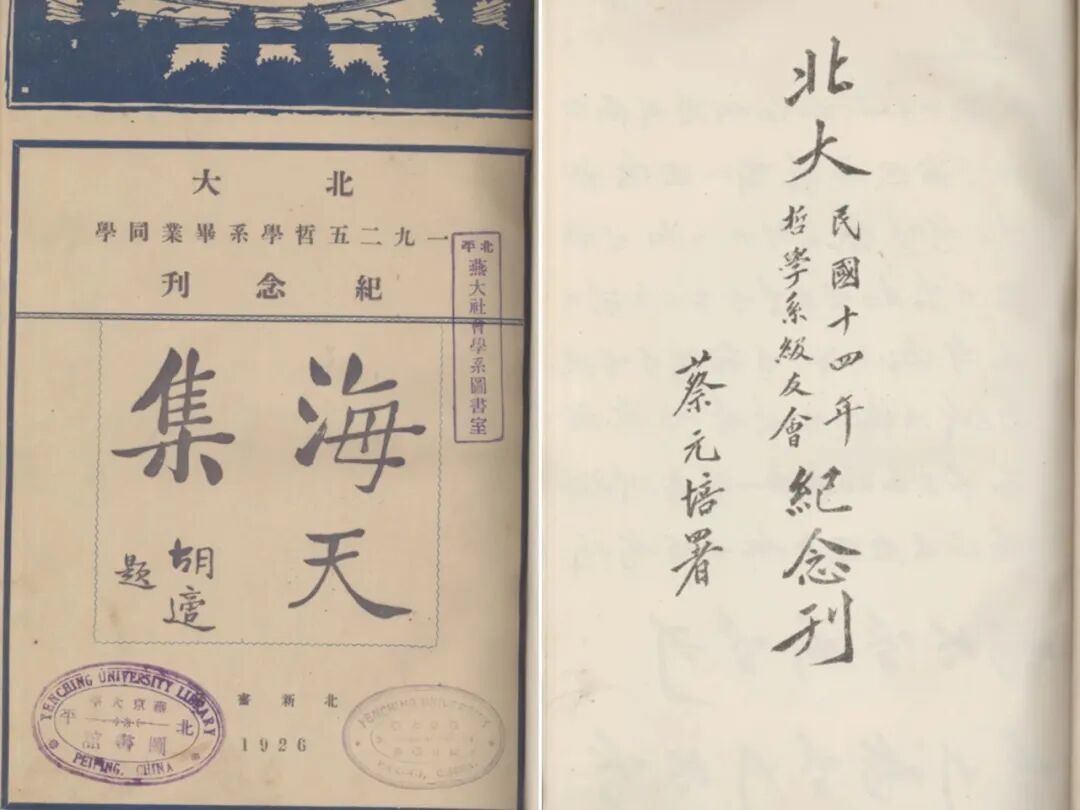 北大
一九二五哲學系畢業同學
紀念刊
北平
燕大社會學系圖書室
海天
集
胡適
題
北新書
1926
YENCHING UNIVERSITY LIBRARY
燕京大學
北平
圖書館
PEIPING, CHINA
北大
民國十四年
哲學系級友會
紀念刊
蔡元培署